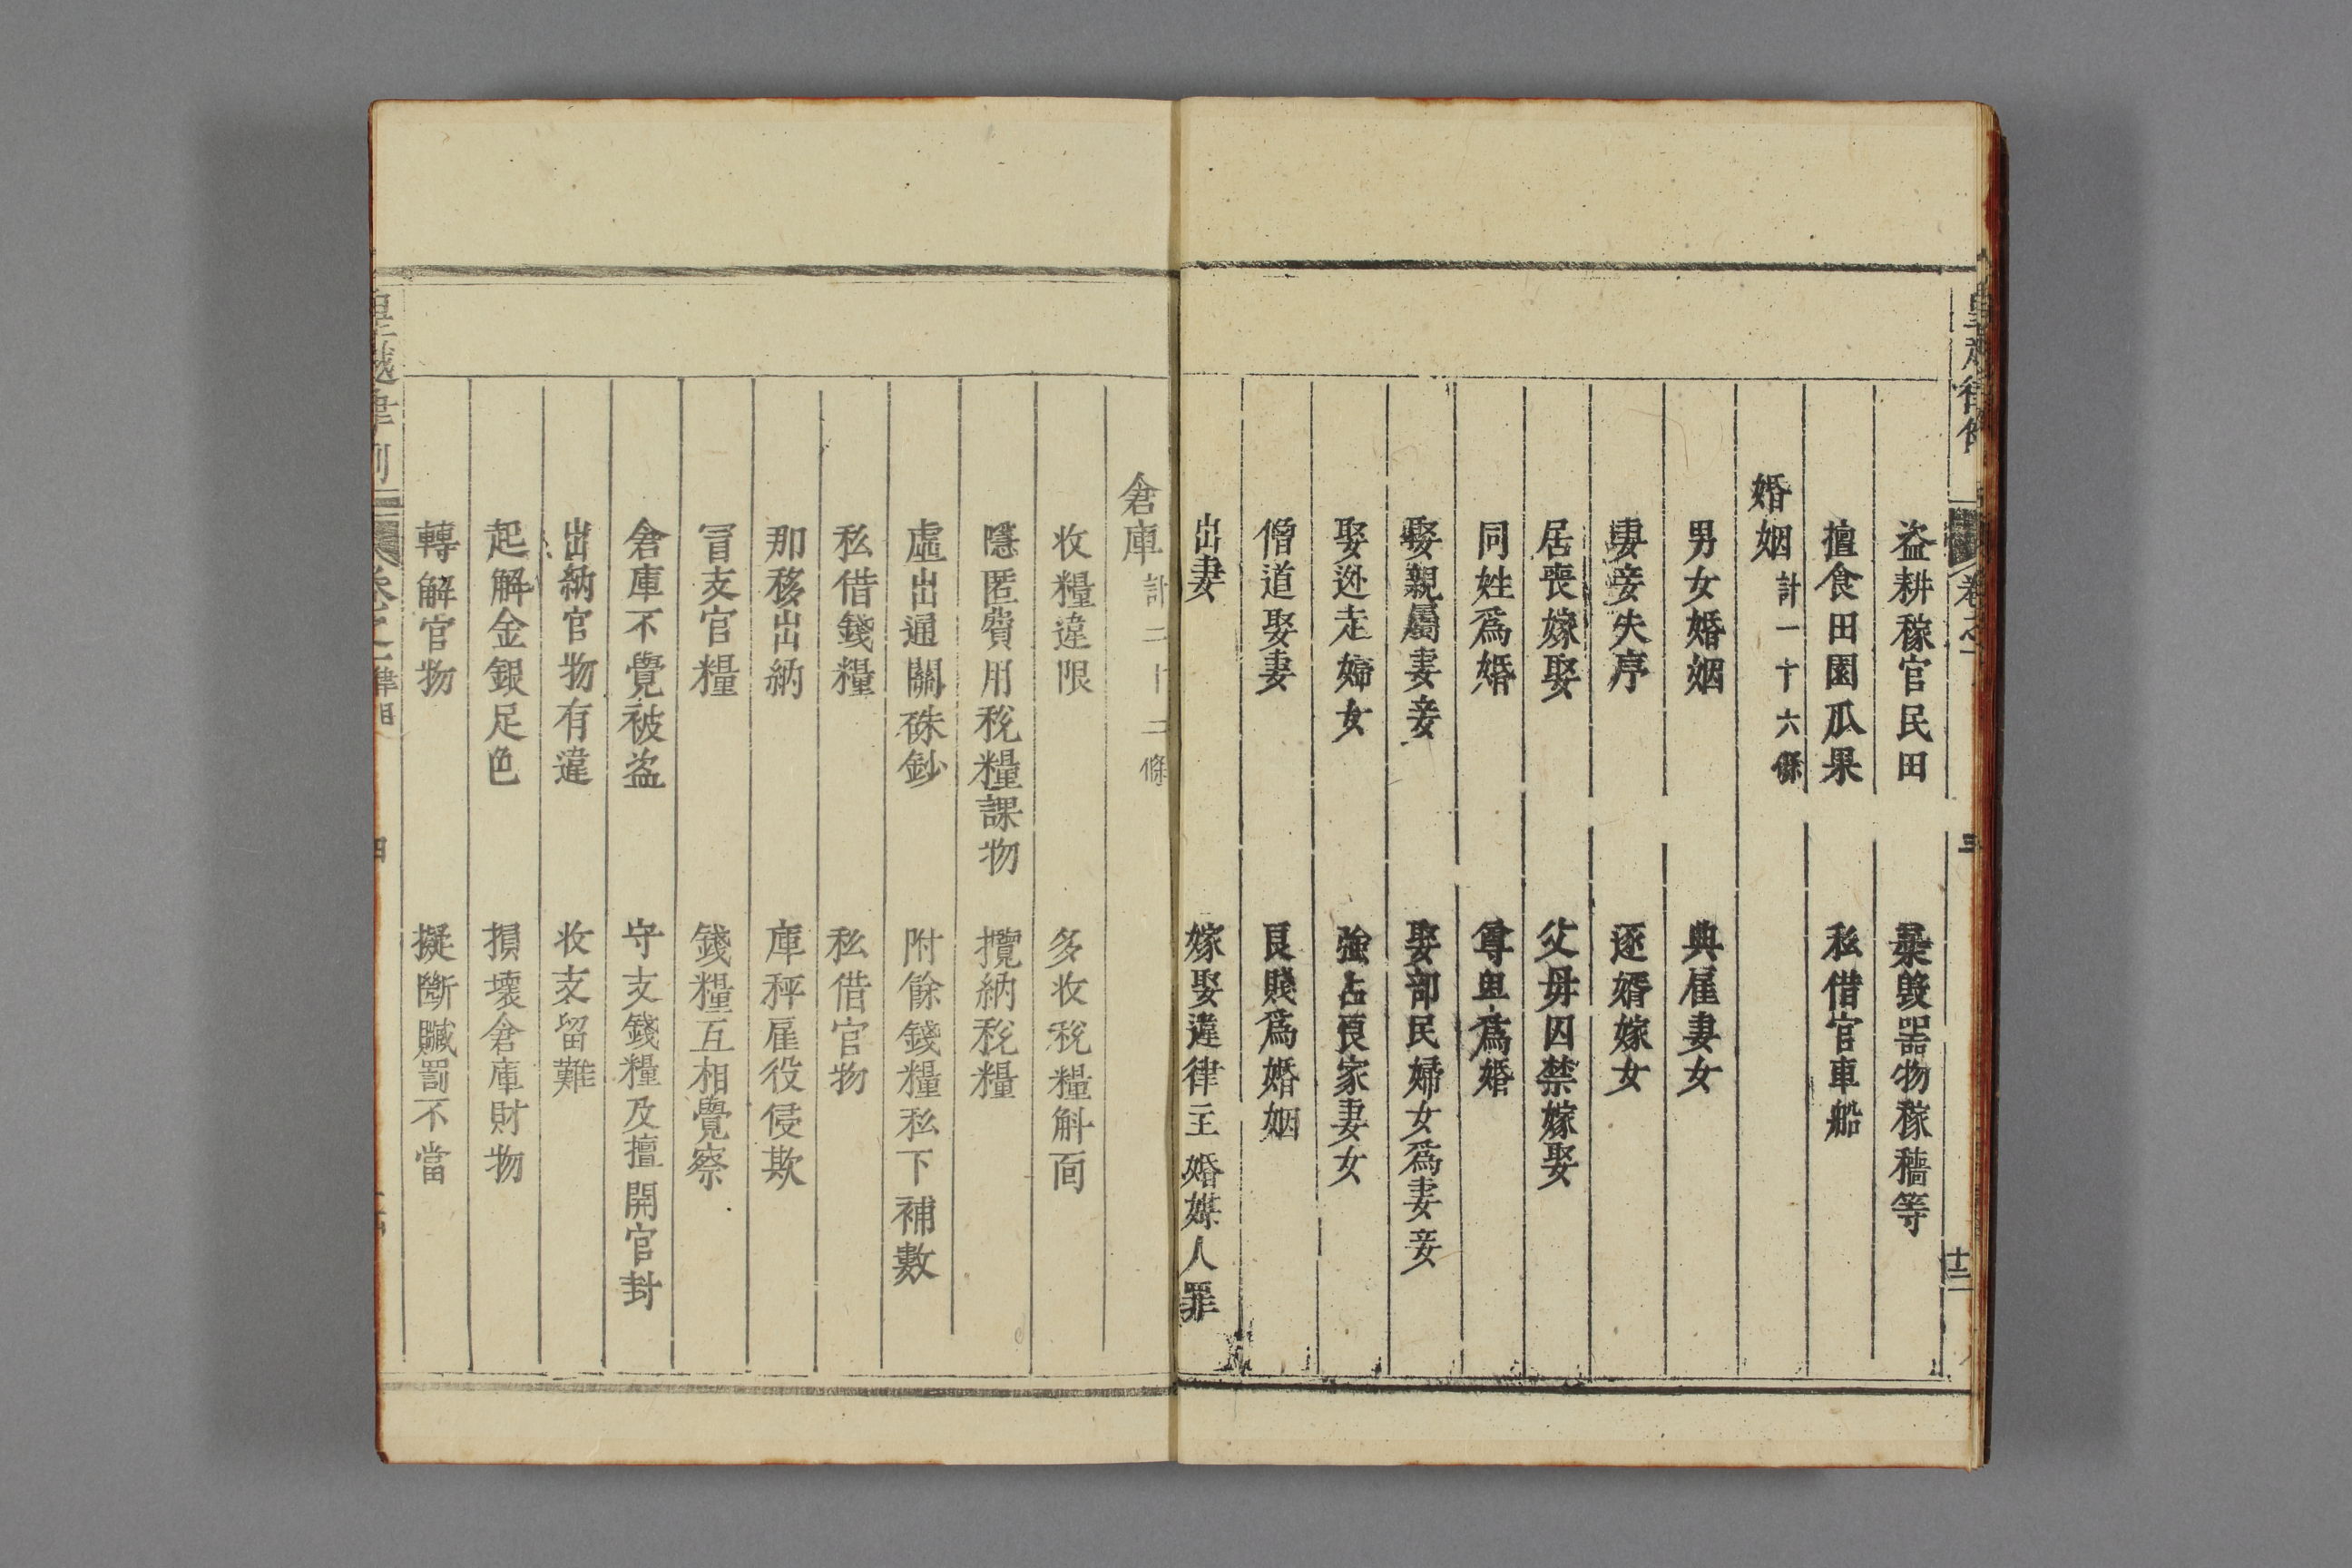 盜耕稼官民田 棄毀器物稼穡等
擅食田園瓜果 私借官車船
婚姻計一十六條
男女婚姻 典雇妻女
妻妾失序 逐婿嫁女
居喪嫁娶 父母囚禁嫁娶
同姓爲婚 尊卑爲婚
娶親屬妻妾 娶部民婦女爲妻妾
娶迯走婦女 強占良家妻女
僧道娶妻 良賤爲婚姻
出妻 嫁娶違律主婚媒人罪
倉庫計二十二條
收糧違限 多收稅糧斛面
隱匿費用稅糧課物 攬納稅糧
虛出通關硃鈔 附餘錢糧私下補數
私借錢糧 私借官物
那移出納 庫秤雇役侵欺
冒支官糧 錢糧互相覺察
倉庫不覺被盜 守支錢糧及擅開官封
出納官物有違 收支留難
起解金銀足色 損壞倉庫財物
轉解官物 擬斷贓罰不當
皇越律例 卷之一 律目 四